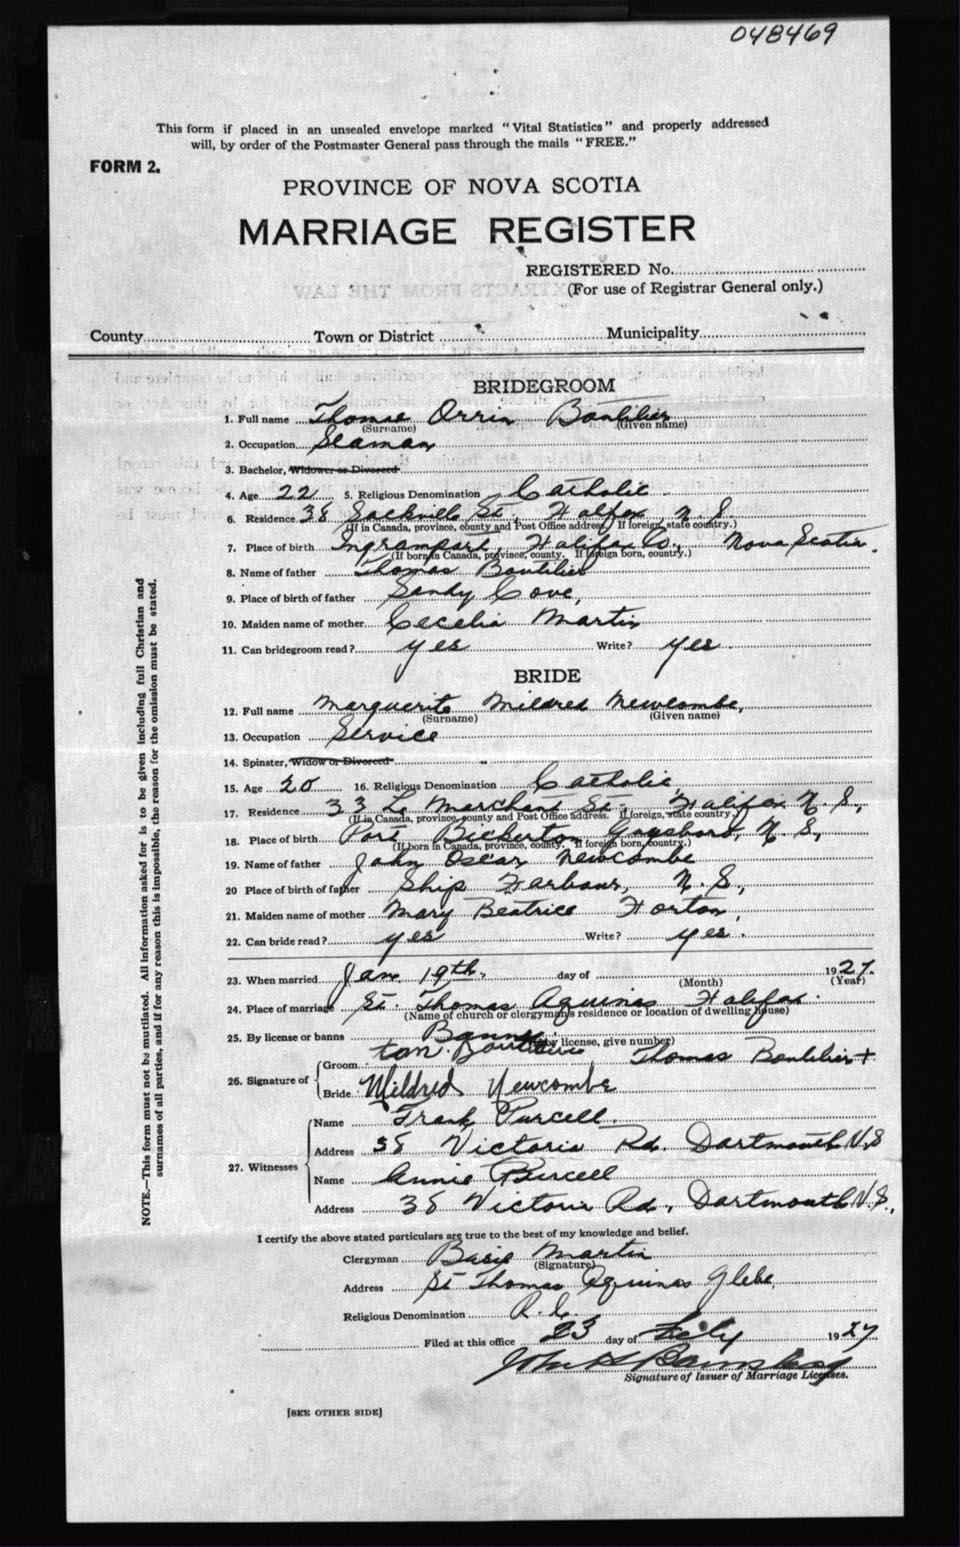 048469
This form if placed in an unsealed envelope marked "Vital Statistics" and properly addressed
will, by order of the Postmaster General pass through the mails "FREE."
FORM 2.
PROVINCE OF NOVA SCOTIA
MARRIAGE REGISTER
REGISTERED No.
(For use of Registrar General only.)
County Town or District Municipality
BRIDEGROOM
1. Full name Thomas Orrin Boutilier
(Surname) (Given name)
2. Occupation Seaman
3. Bachelor, Widower or Divorced
4. Age 22 5. Religious Denomination Catholic
6. Residence 38 Sackville St., Halifax, N. S.
(If in Canada, province, county and Post Office address. If foreign, state country.)
7. Place of birth Ingramport, Halifax Co., Nova Scotia.
(If born in Canada, province, county. If foreign born, country.)
8. Name of father Thomas Boutilier
9. Place of birth of father Sandy Cove,
10. Maiden name of mother Cecelia Martin
11. Can bridegroom read? yes Write? yes.
BRIDE
12. Full name Marguerite Mildred Newcombe,
(Surname) (Given name)
13. Occupation Service
14. Spinster, Widow or Divorced
15. Age 20 16. Religious Denomination Catholic
17. Residence 33 Le Marchant St., Halifax N. S.,
(If in Canada, province, county and Post Office address. If foreign, state country.)
18. Place of birth Port Bickerton Guysboro, N. S.,
(If born in Canada, province, county. If foreign born, country.)
19. Name of father John Oscar Newcombe
20 Place of birth of father Ship Harbour, N. S.,
21. Maiden name of mother Mary Beatrice Horton,
22. Can bride read? yes Write? yes.
23. When married Jan. 19th, day of 1927.
(Month) (Year)
24. Place of marriage St. Thomas Aquinas Halifax.
(Name of church or clergyman's residence or location of dwelling house)
25. By license or banns Banns
(If by license, give number)
26. Signature of Groom Boutilier Thomas Boutilier +
Bride Mildred Newcombe
27. Witnesses
Name Frank Purcell.
Address 38 Victoria Rd. Dartmouth N.S
Name Annie Purcell
Address 38 Victoria Rd., Dartmouth N.S.,
I certify the above stated particulars are true to the best of my knowledge and belief.
Clergyman Basil Martin
(Signature)
Address St Thomas Aquinas Glebe
Religious Denomination R. C.
Filed at this office 23 day of 1927
John H Barnstead
Signature of Issuer of Marriage Licenses.
[SEE OTHER SIDE]
NOTE.—This form must not be mutilated. All information asked for is to be given including full Christian and
surnames of all parties, and if for any reason this is impossible, the reason for the omission must be stated.